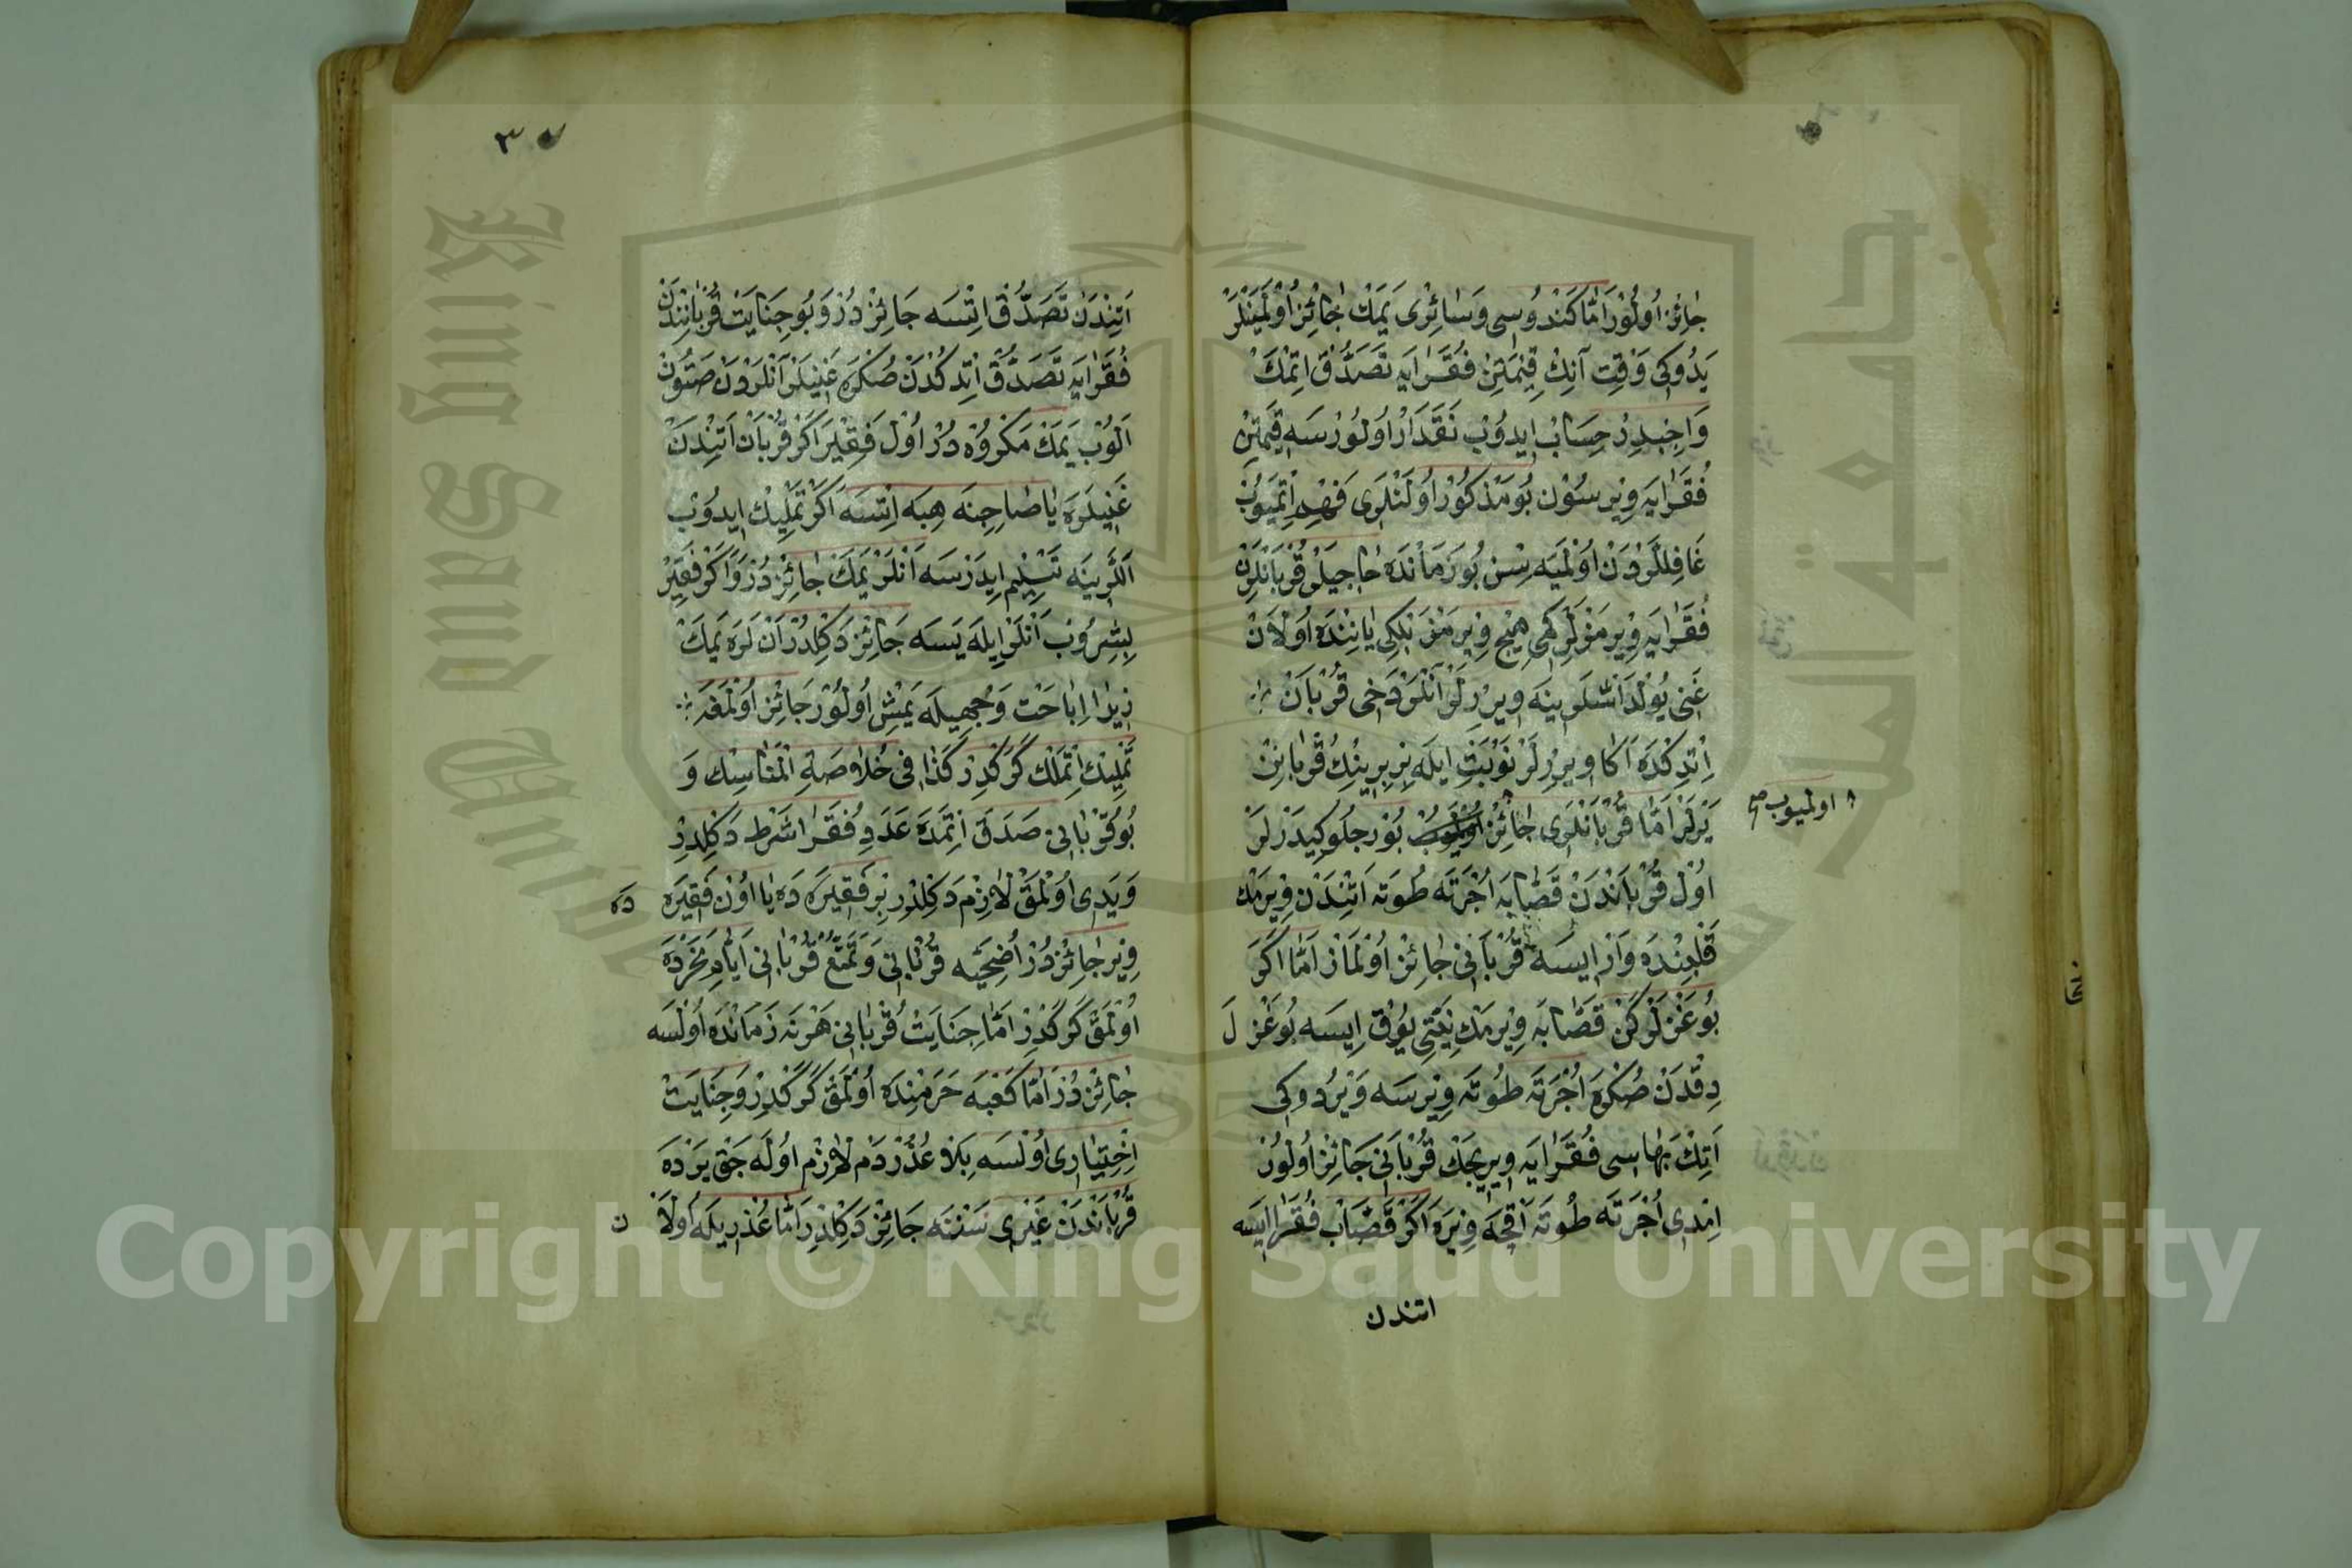 جائز اولور اما كندوسى و سائرى يمك جائز اولمينلر
يدوكى وقت آنك قيمتن فقرايه تصدق اتمك
واجبدر حساب ايدوب نقدار اولورسه قيمتن
فقرايه ويرسون بو مذكور اولنلرى فهم اتميوب
غافللردن اولميه سن بو زمانده حاجيلر قربانلرن
فقرايه ويرمزلر كمى هيچ ويرمز بلكى ياننده اولان
غنى يولداشلرينه ويررلر آنلر دخى قربان
اتدكده اكا ويررلر نوبت ايله بربرينك قربانن
يرلر اما قربانلرى جائز اولميوب بورجلو كيدرلر
اول قرباندن قصابه اجرته طوته اتندن ويرمك
قلبنده وار ايسه قربانى جائز اولماز اما اكر
بوغزلركن قصابه ويرمك نيتى يوق ايسه بوغزل
دقدن صكره اجرته طوته ويرسه ويردوكى
اتك بهاسى فقرايه ويريجك قربانى جائز اولور
امدى اجرته طوته اقچه ويره اكر قصاب فقرا ايسه
اولميوب صح
اتندن
٣
اتندن تصدق اتسه جائزدر و بو جنايت قرباندن
فقرايه تصدق اتدكدن صكره غنيلر آنلردن صتون
الوب يمك مكروه در اول فقير اكر قربان اتندن
غنيلره يا صاحبنه هبه اتسه اكر تمليك ايدوب
اللرينه تسليم ايدرسه آنلر يمك جائزدر و اكر فقير
بشروب آنلر ايله يسه جائز دكلدر آنلره يمك
زيرا اباحت وجهيله يمش اولور جائز اولمز
تمليك اتملك كركدر كذا فى خلاصة المناسك و
بو قربانى صدق اتمده عدد فقرا شرط دكلدر
و يدى اولمق لازم دكلدر بر فقيره ده يا اون فقيره ده
وير جائزدر اضحيه قربانى و تمتع قربانى ايام نحرده
اولمق كركدر اما جنايت قربانى هر نه زمانده اولسه
جائزدر اما كعبه حرمنده اولمق كركدر و جنايت
اختيارى اولسه بلا عذر دم لازم اوله جق يرده
قرباندن غيرى نسنه جائز دكلدر اما عذريله اولان